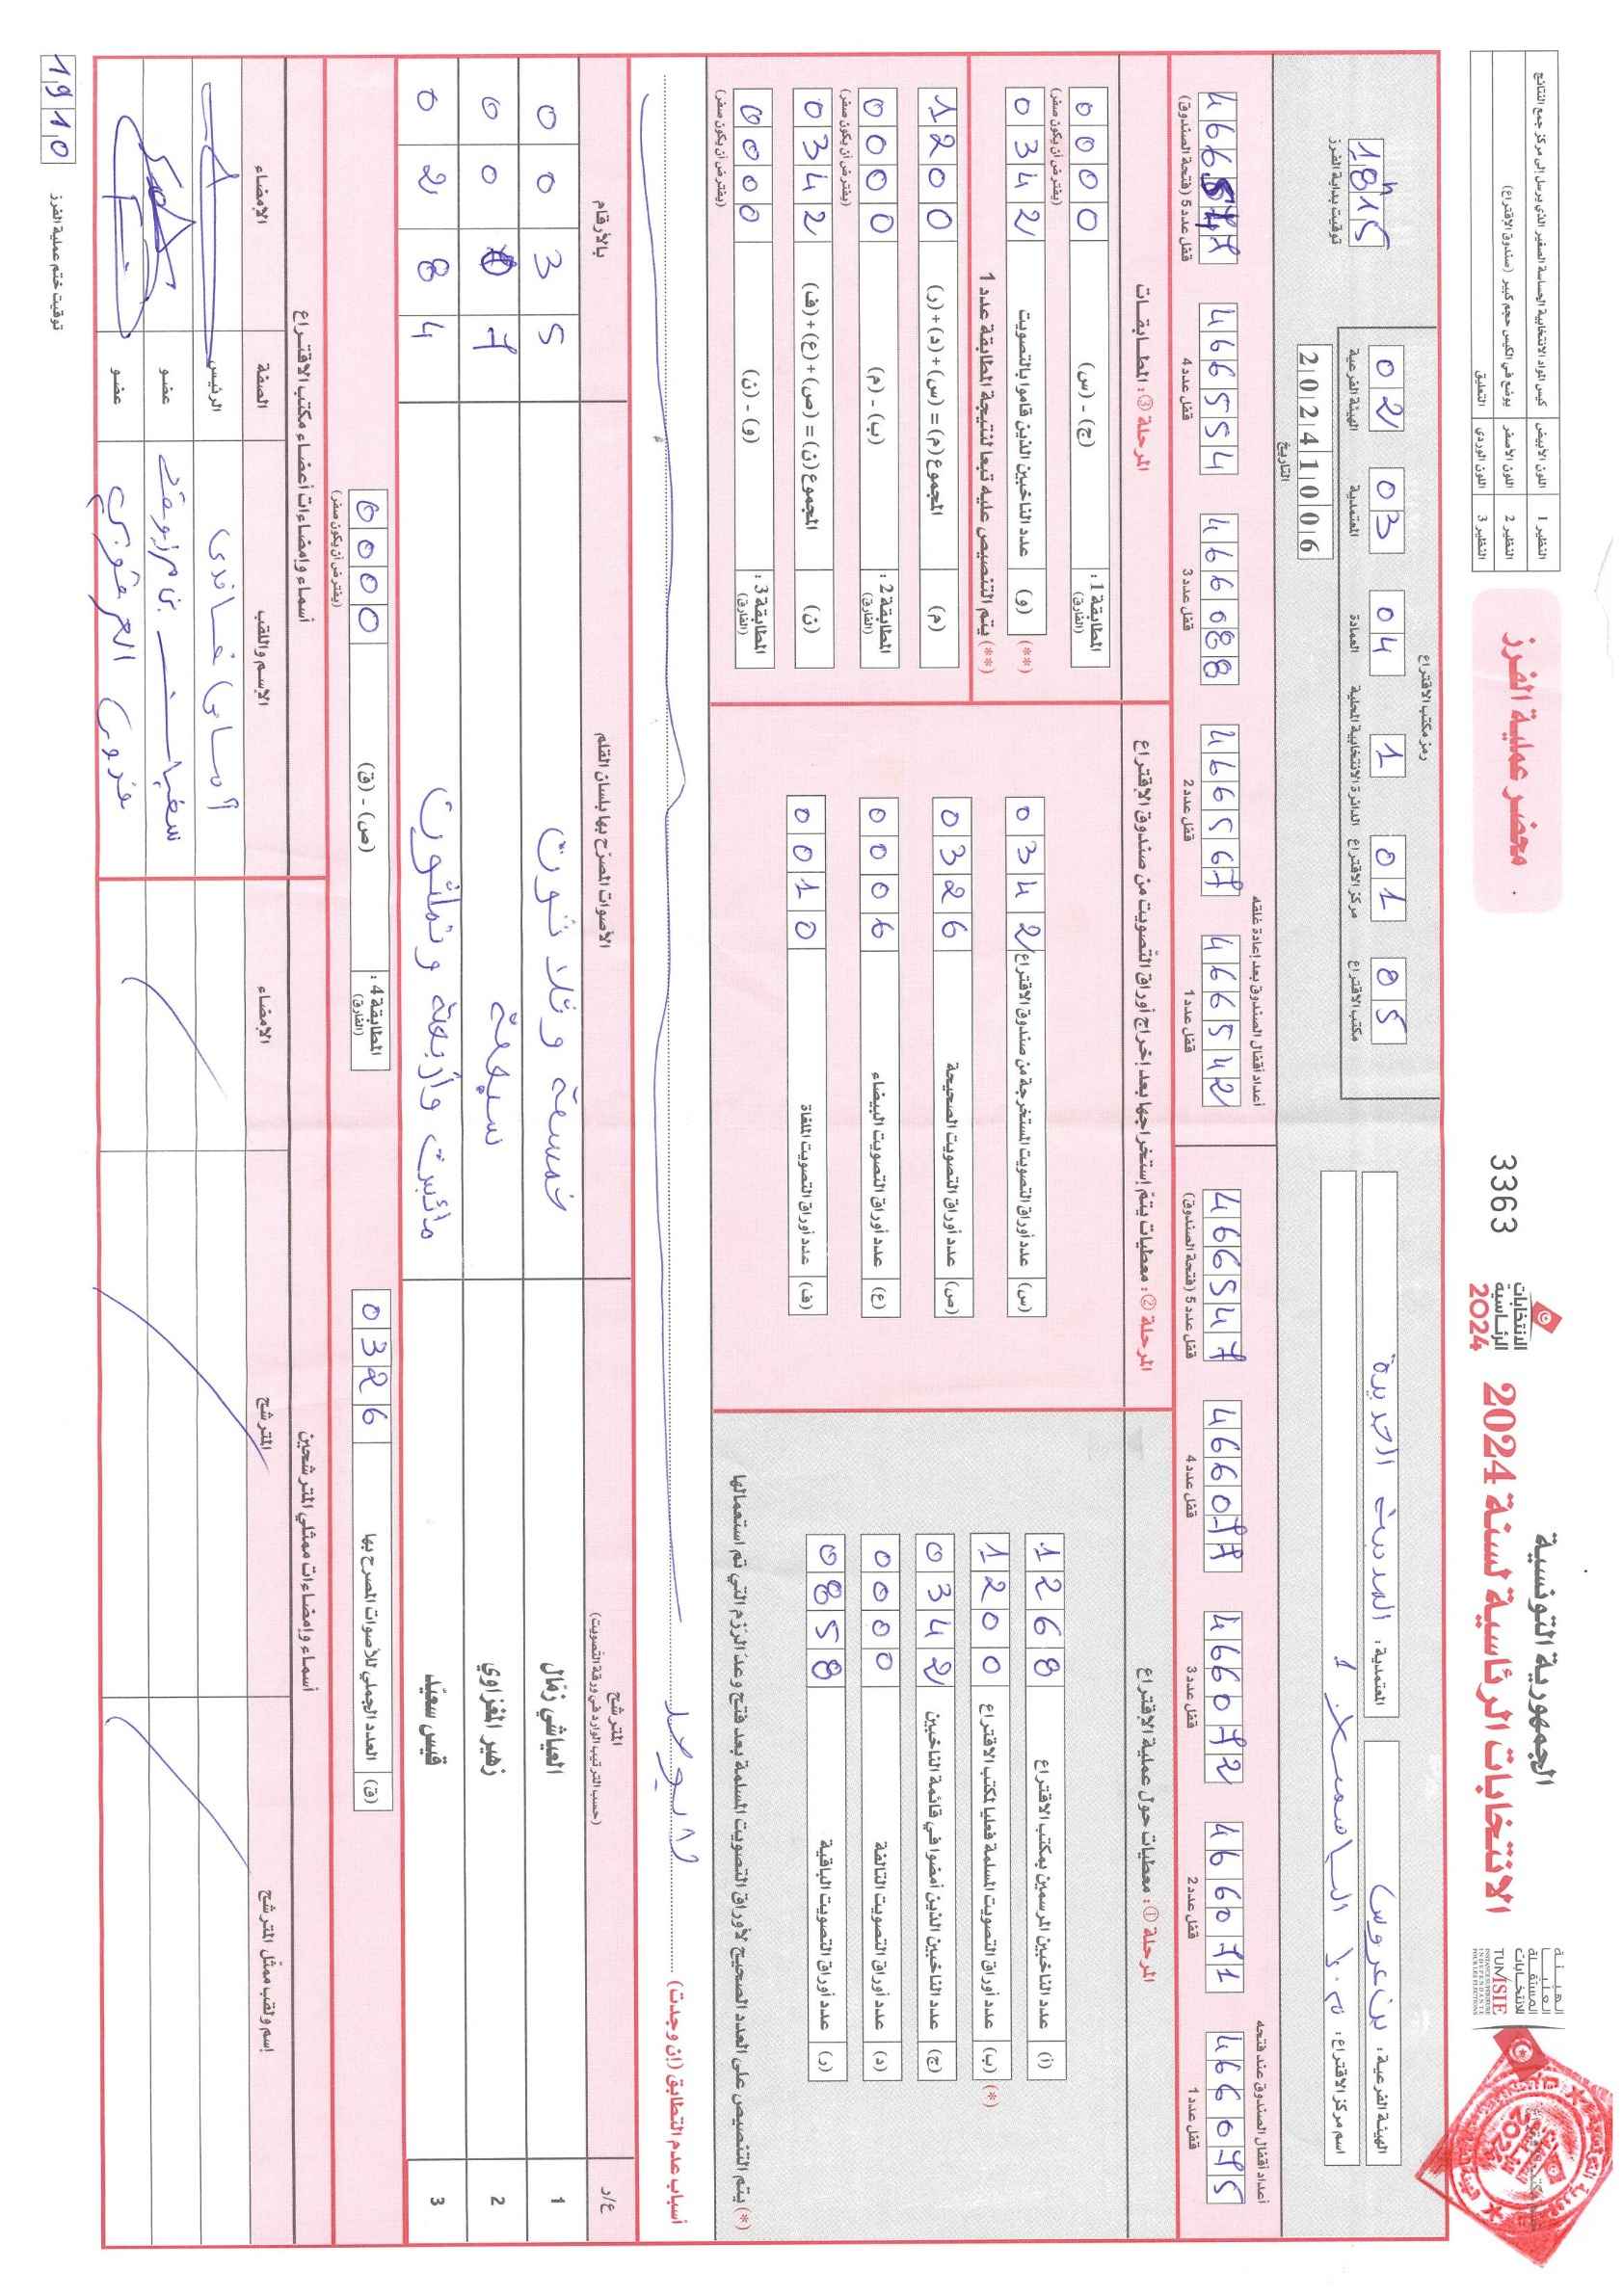 الجمهورية التونسية
الانتخابات الرئاسية لسنة 2024
الانتخابات
الرئاسية
2024
3363
الهيئة
العليا
المستقلة
للانتخابات
TUNISIE
محضر عملية الفرز
النظير 1 اللون الأبيض كيس المواد الانتخابية الحساسة الصغير الذي يرسل إلى مركز جمع النتائج
النظير 2 اللون الأصفر يوضع في الكيس حجم كبير (صندوق الاقتراع)
النظير 3 اللون الوردي التعليق
الهيئة الفرعية: بن عروس
المعتمدية: المدينة الجديدة
اسم مركز الاقتراع: م.إ. الياسمينة 1
رمز مكتب الاقتراع
05 01 1 04 03 02
مكتب الاقتراع مركز الاقتراع الدائرة الانتخابية المحلية العمادة المعتمدية الهيئة الفرعية
20241006
التاريخ
18h15
توقيت بداية الفرز
أعداد أقفال الصندوق عند فتحه
466075 466071 466072 466077 466547
قفل عدد 1 قفل عدد 2 قفل عدد 3 قفل عدد 4 قفل عدد 5 (فتحة الصندوق)
أعداد أقفال الصندوق بعد إعادة غلقه
466542 466567 466088 466554
قفل عدد 1 قفل عدد 2 قفل عدد 3 قفل عدد 4 قفل عدد 5 (فتحة الصندوق)
المرحلة ①: معطيات حول عملية الاقتراع
(أ) عدد الناخبين المرسمين بمكتب الاقتراع 1268
(*) (ب) عدد أوراق التصويت المسلمة فعليا لمكتب الاقتراع 1200
(ج) عدد الناخبين الذين أمضوا في قائمة الناخبين 0342
(د) عدد أوراق التصويت التالفة 0000
(ر) عدد أوراق التصويت الباقية 0858
(*) يتم التنصيص على العدد الصحيح لأوراق التصويت المسلمة بعد فتح وعد الرزم التي تم استعمالها
المرحلة ②: معطيات يتم إستخراجها بعد إخراج أوراق التصويت من صندوق الاقتراع
(س) عدد أوراق التصويت المستخرجة من صندوق الاقتراع 0342
(ص) عدد أوراق التصويت الصحيحة 0326
(ع) عدد أوراق التصويت البيضاء 0006
(ف) عدد أوراق التصويت الملغاة 0010
المرحلة ③: المطابقات
المطابقة 1: (الفارق) (ج) - (س) 0000
(يفترض أن يكون صفر)
(**) (و) عدد الناخبين الذين قاموا بالتصويت 0342
(**) يتم التنصيص عليه تبعا لنتيجة المطابقة عدد 1
(م) المجموع (م) = (س) + (د) + (ر) 1200
المطابقة 2: (الفارق) (ب) - (م) 0000
(يفترض أن يكون صفر)
(ن) المجموع (ن) = (ص) + (ع) + (ف) 0342
المطابقة 3: (الفارق) (و) - (ن) 0000
(يفترض أن يكون صفر)
أسباب عدم التطابق (إن وجدت) لا يوجد
ع/ر المترشح (حسب الترتيب الوارد في ورقة التصويت) الأصوات المصرّح بها بلسان القلم بالأرقام
1 العياشي زمّال خمسة وثلاثون 0035
2 زهير المغزاوي سبعة 0007
3 قيس سعيّد مائتين وأربعة وثمانون 0284
(ق) العدد الجملي للأصوات المصرح بها 0326
المطابقة 4: (الفارق) (ص) - (ق) 0000
(يفترض أن يكون صفر)
أسماء وإمضاءات ممثلي المترشحين
إسم ولقب ممثل المترشح المترشح الإمضاء
أسماء وإمضاءات أعضاء مكتب الاقتراع
الإسم واللقب الصفة الإمضاء
الرئيس
عضو
عضو
19 10
توقيت ختم عملية الفرز